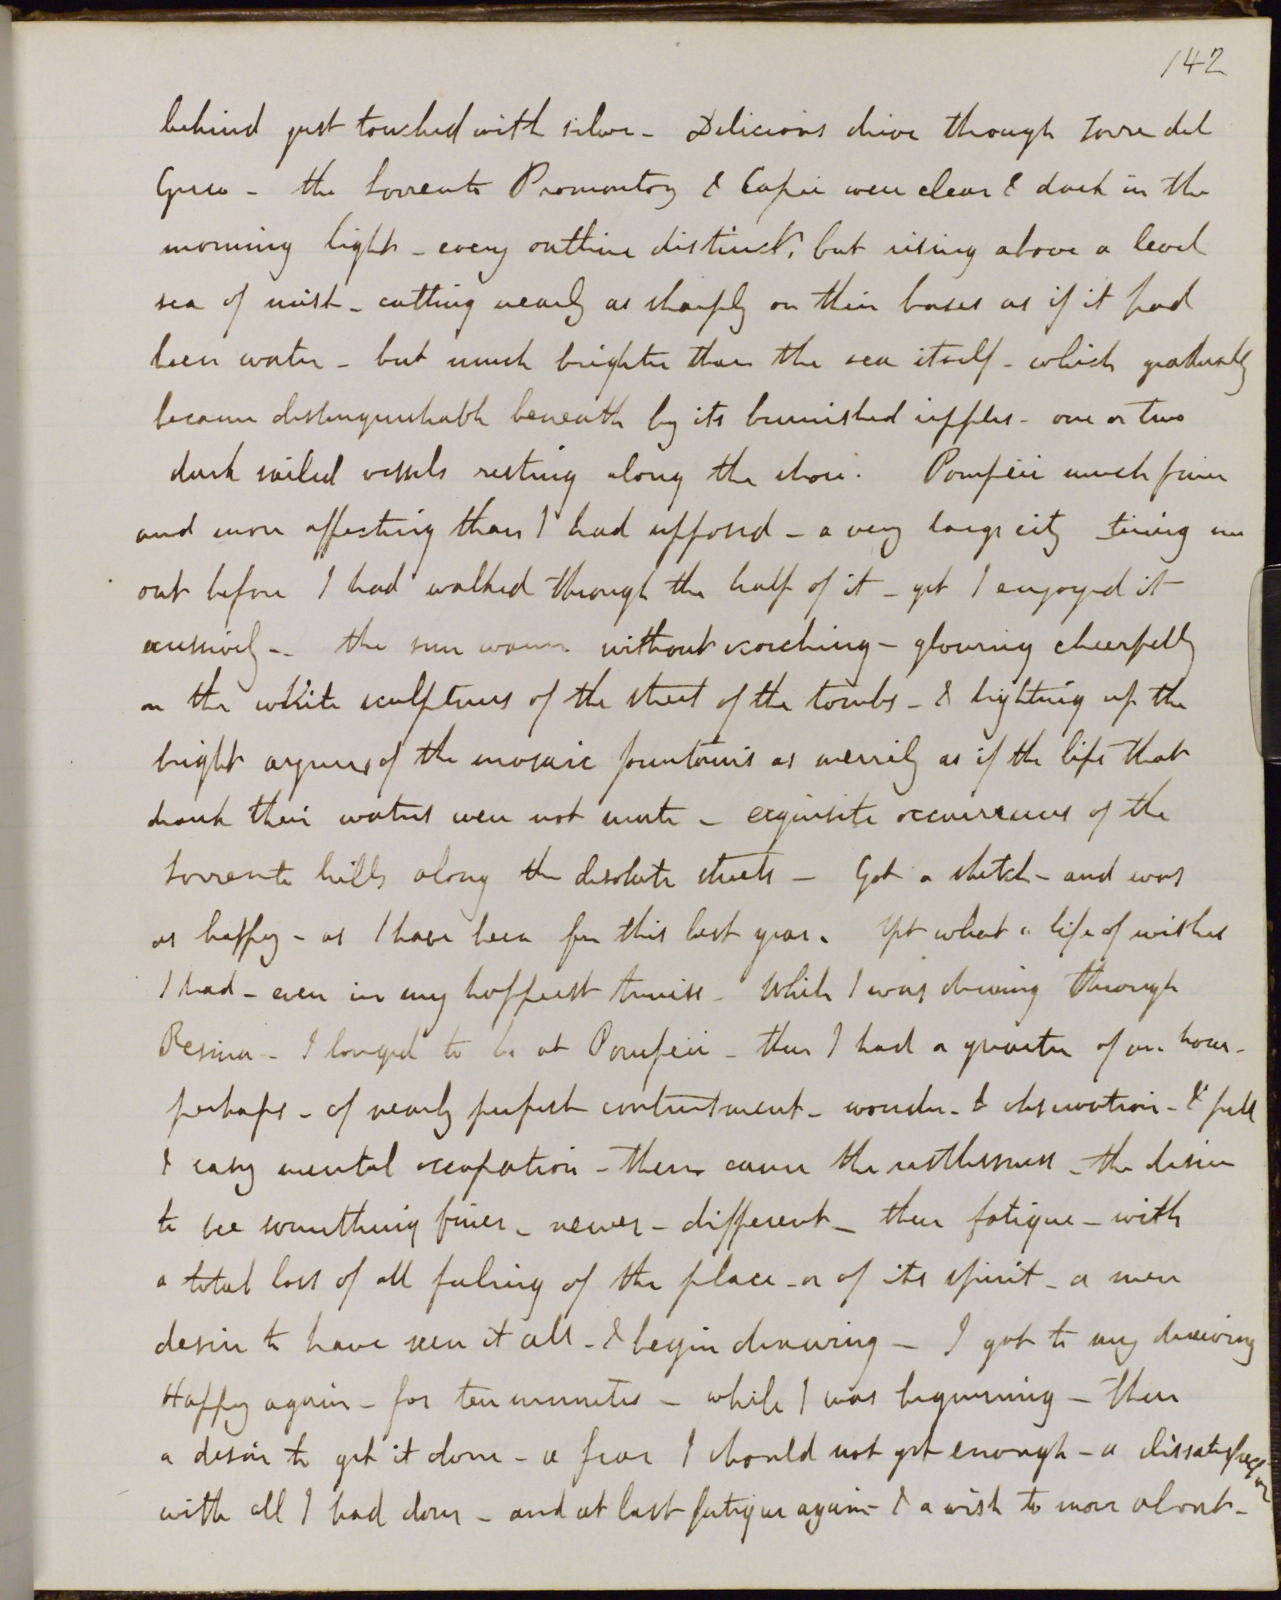 142
behind just touched with silver - Delicious drive through Torre del
Greco - the Sorrento Promontory & Capri were clear & dark in the
morning light - every outline distinct, but rising above a level
sea of mist - cutting nearly as sharply on their bases as if it had
been water - but much brighter than the sea itself - which gradually
became distinguishable beneath by its burnished ripples - one or two
dark sailed vessels resting along the shore. Pompeii much finer
and more affecting than I had supposed - a very large city tiring me
out before I had walked through the half of it - yet I enjoyed it
excessively - the sun warm without scorching - glowing cheerfully
on the white sculptures of the street of the tombs - & lighting up the
bright of the mosaic fountains as merrily as if the life that
drank their waters were not mute - exquisite occurrences of the
Sorrento hills along the desolate streets - Got a sketch - and was
as happy - as I have been for this last year. Yet what a life of wishes
I had - even in my happiest times - While I was driving through
Resina - I longed to be at Pompeii - then I had a quarter of an hour -
perhaps - of nearly perfect contentment - wonder - & observation - & full
& easy mental occupation - then came the restlessness - the desire
to see something finer - newer - different - then fatigue - with
a total loss of all feeling of the place - or of its spirit - a mere
desire to have seen it all - & begin drawing - I got to my drawing
Happy again - for ten minutes - while I was beginning - then
a desire to get it done - a fear I should not get enough - a dissatisfaction
with all I had done - and at last fatigue again - & a wish to move about -